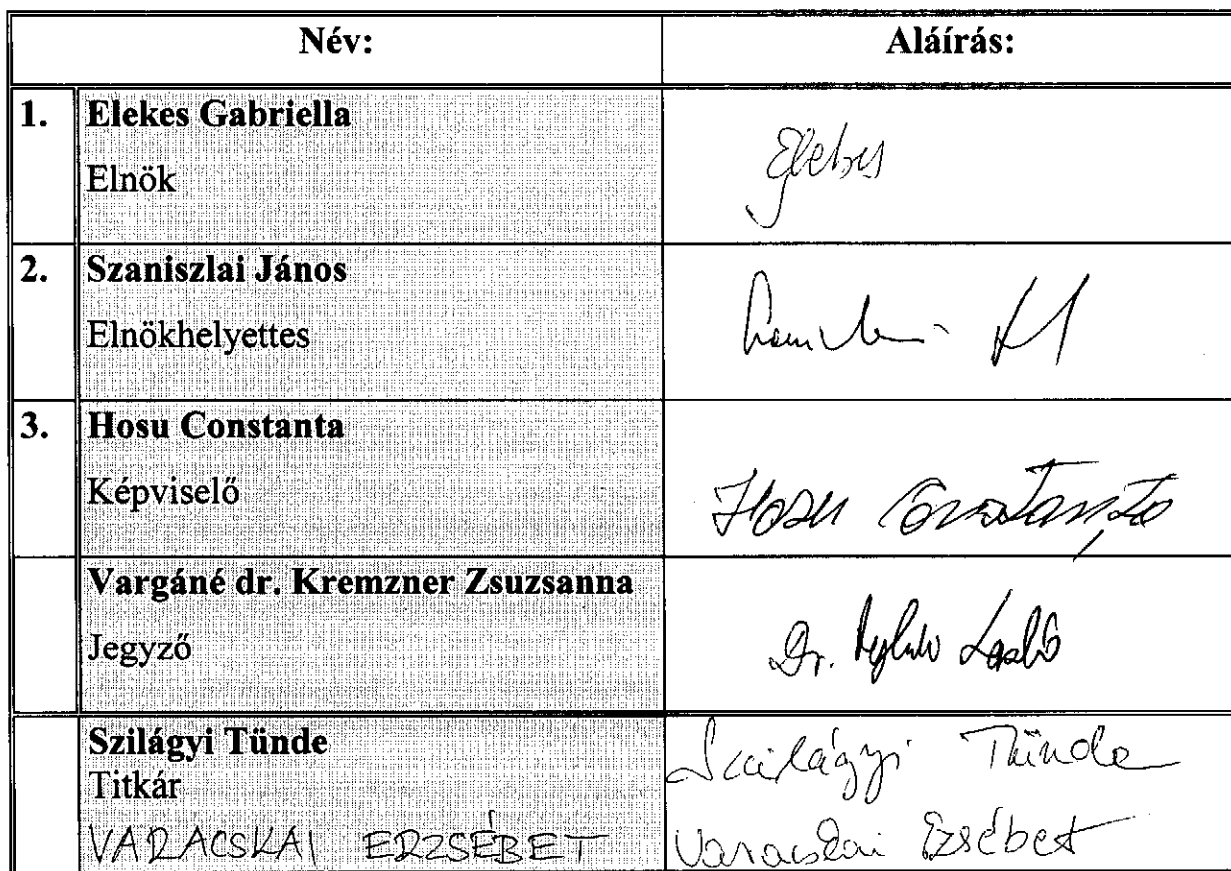 Név: Aláírás:
1. Elekes Gabriella
Elnök
Elekes
2. Szaniszlai János
Elnökhelyettes
3. Hosu Constanta
Képviselő
Hosu Constanța
Vargáné dr. Kremzner Zsuzsanna
Jegyző
Dr. László
Szilágyi Tünde
Titkár
Szilágyi Tünde
VARACSKAI ERZSÉBET
Varacskai Erzsébet